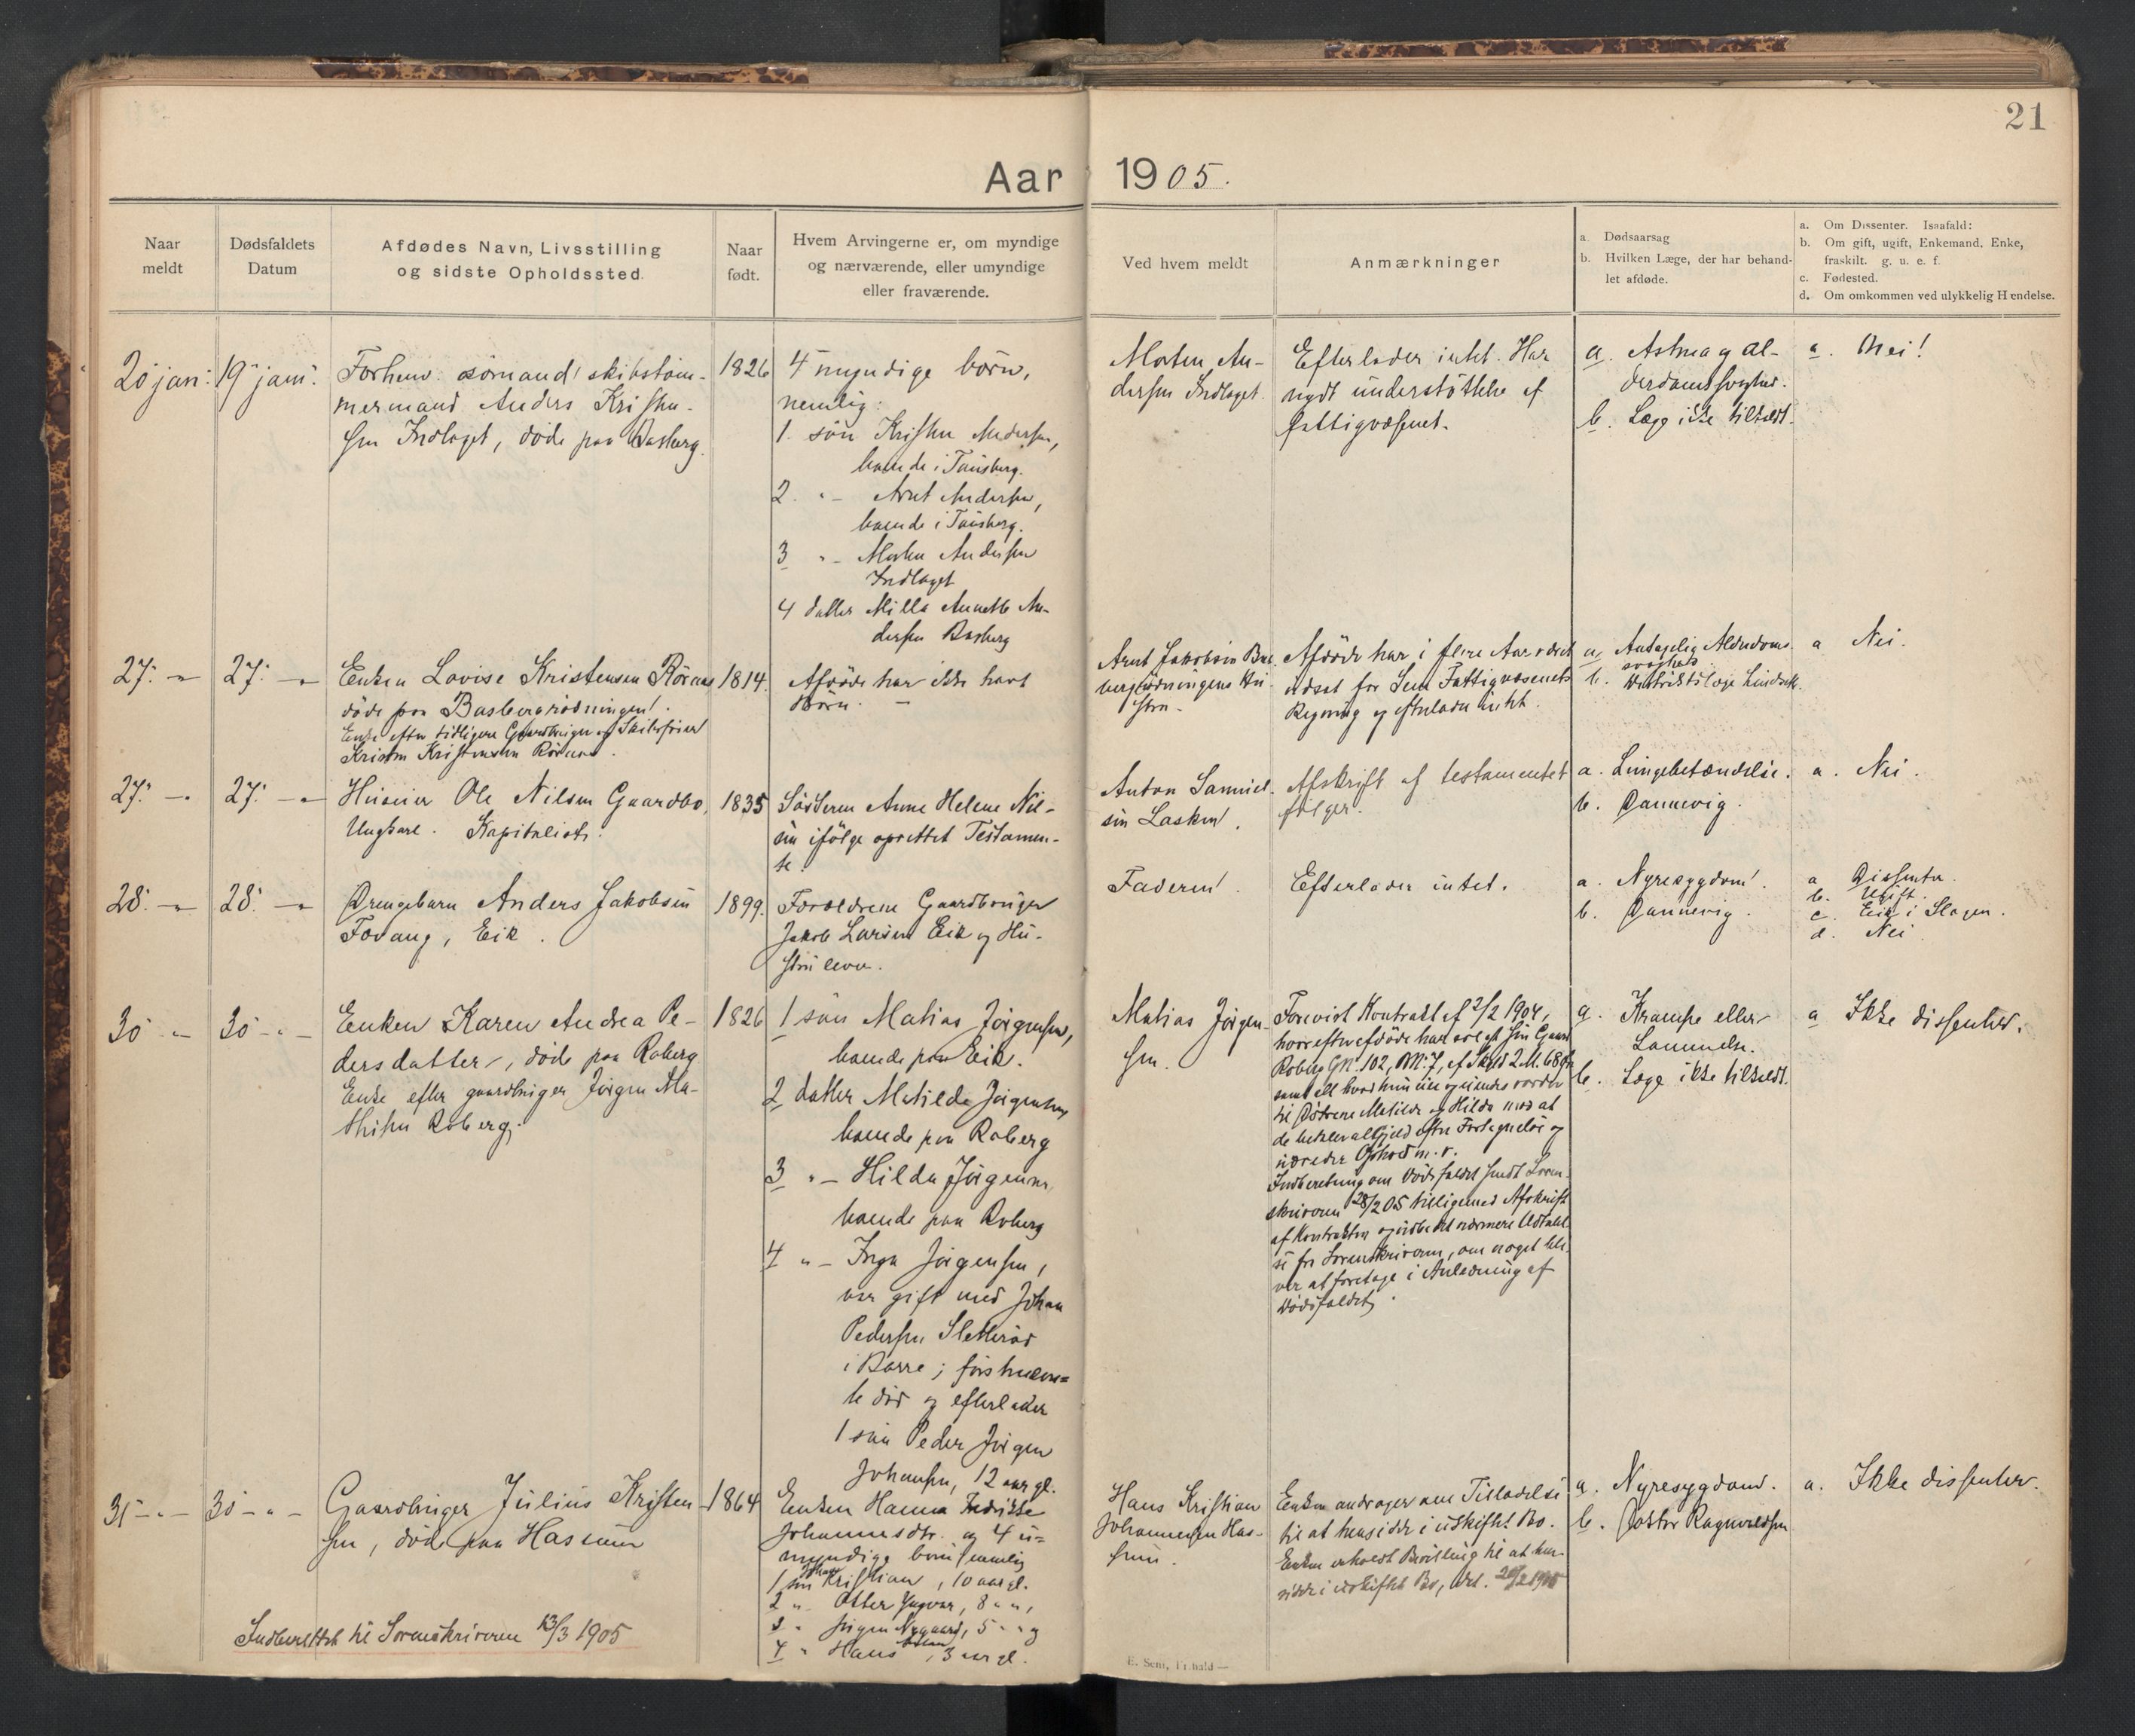 21
Aar 1905.
Naar
meldt
Dødsfaldets
Datum
Afdødes Navn, Livsstilling
og sidste Opholdssted.
Naar
født.
Hvem Arvingerne er, om myndige
og nærværende, eller umyndige
eller fraværende.
Ved hvem meldt
Anmærkninger
a. Dødsaarsag
b. Hvilken Læge, der har behand-
let afdøde.
a. Om Dissenter. Isaafald:
b. Om gift, ugift, Enkemand, Enke,
fraskilt. g. u. e. f.
c. Fødested.
d. Om omkommen ved ulykkelig Hændelse.
20 jan: 19 jan:
Forhenv. sømand, skibstøm-
mermand Anders Kristen-
sen Indlaget, døde paa Basberg.
1826
4 myndige børn,
nemlig:
1. søn Kristen Andersen,
boende i Tønsberg.
2. " – Arnt Andersen,
boende i Tønsberg.
3 " – Morten Andersen
Indlaget
4 datter Milla Annette An-
dersen Basberg
Morten An-
dersen Indlaget.
Efterlader intet. Har
nydt understøttelse af
fattigvæsenet.
a. Astma og al-
derdomssvaghed.
b. Læge ikke tilkaldt.
a. Nei!
27. – " 27. – "
Enken Lovise Kristensen Røraas
døde paa Basbergrødningen.
Enke efter tidligere Gaardbruger og Skibsfører
Kristen Kristensen Røraas.
1814.
Afdøde har ikke havt
Børn. –
Arnt Jakobsen Bas-
bergrødningens Hu-
stru –
Afdøde har i flere Aar været
udsat for Sem Fattigvæsenets
Regning og efterlader intet.
a. Antagelig Alderdoms-
svaghed.
b. Distriktslæge Lindseth.
a Nei.
27. – " 27. – "
Huseier Ole Nilsen Gaardbo,
Ungkarl. Kapitalist.
1835
Søsteren Anne Helene Nil-
sen ifølge oprettet Testamen-
te.
Anton Samuel-
sen Lasken.
Afskrift af testamentet
følger.
a. Lungebetændelse.
b. Dannevig.
a. Nei.
28. – " 28. – "
Drengebarn Anders Jakobsen
Fovang, Eik.
1899.
Forældrene Gaardbruger
Jakob Larsen Eik og Hu-
stru lever.
Faderen.
Efterlader intet.
a. Nyresygdom.
b. Dannevig.
a Dissenter.
b. Ugift.
c. Eik i Slagen.
d. Nei
30 – " 30 – " –
Enken Karen Andrea Pe-
dersdatter, døde paa Roberg
Enke efter gaardbruger Jørgen Ma-
thisen Roberg.
1826
1 søn Matias Jørgensen,
boende paa Eik.
2 datter Matilde Jørgensen
boende paa Roberg
3 " – Hilda Jørgensen
boende paa Roberg
4 " – Inga Jørgensen,
var gift med Johan
Pedersen Sletterød
i Borre;førstnævn=
te død og efterlader
1 søn Peder Jørgen
Johansen, 12 aar gl.
Matias Jørgen-
sen.
Forevist Kontrakt af 2/2 1904,
hvorefter afdøde har solgt sin Gaard
Roberg GN. 102, BN. 7, af Skyld 2 M. 68 Øre
samt alt hvad hun eier og eiendes vorder
til Døtrene Matilde og Hilda mod at
de betaler al Gjeld efter Fortegnelse og
udreder Ophold m. v.
Indberetning om Dødsfaldet sendt Soren-
skriveren 28/2 05 tilligemed Afskrift
af Kontrakten og udbedt nærmere Udtalel-
se fra Sorenskriveren, om noget bli-
ver at foretage i Anledning af
Dødsfaldet.
a. Krampe eller
Lammelse.
b. Læge ikke tilkaldt.
a Ikke dissenter.
31 – " – 30 – " –
Gaardbruger Julius Kristen-
sen, døde paa Hassum
1864
Enken Hanna Fredrikke
Johannesdtr. og 4 u=
myndige børn nemlig
1 søn Johan Kristian, 10 aar gl.
2 " Otter Ingvar, 8 " ",
3 " Jørgen Nygaard, 5 " " og
4 " Hans , 3 aar gl.
Hans Kristian
Johannesen Has-
sum.
Enken andrager om Tilladelse
til at hensidde i uskiftet Bo.
Enken erholdt Bevilling til at hen-
sidde i uskiftet Bo, dat. 20/2 1905
a. Nyresygdom.
b. Doktor Ragnvaldsen
a. Ikke dissenter.
Indberettet til Sorenskriveren 13/3 1905